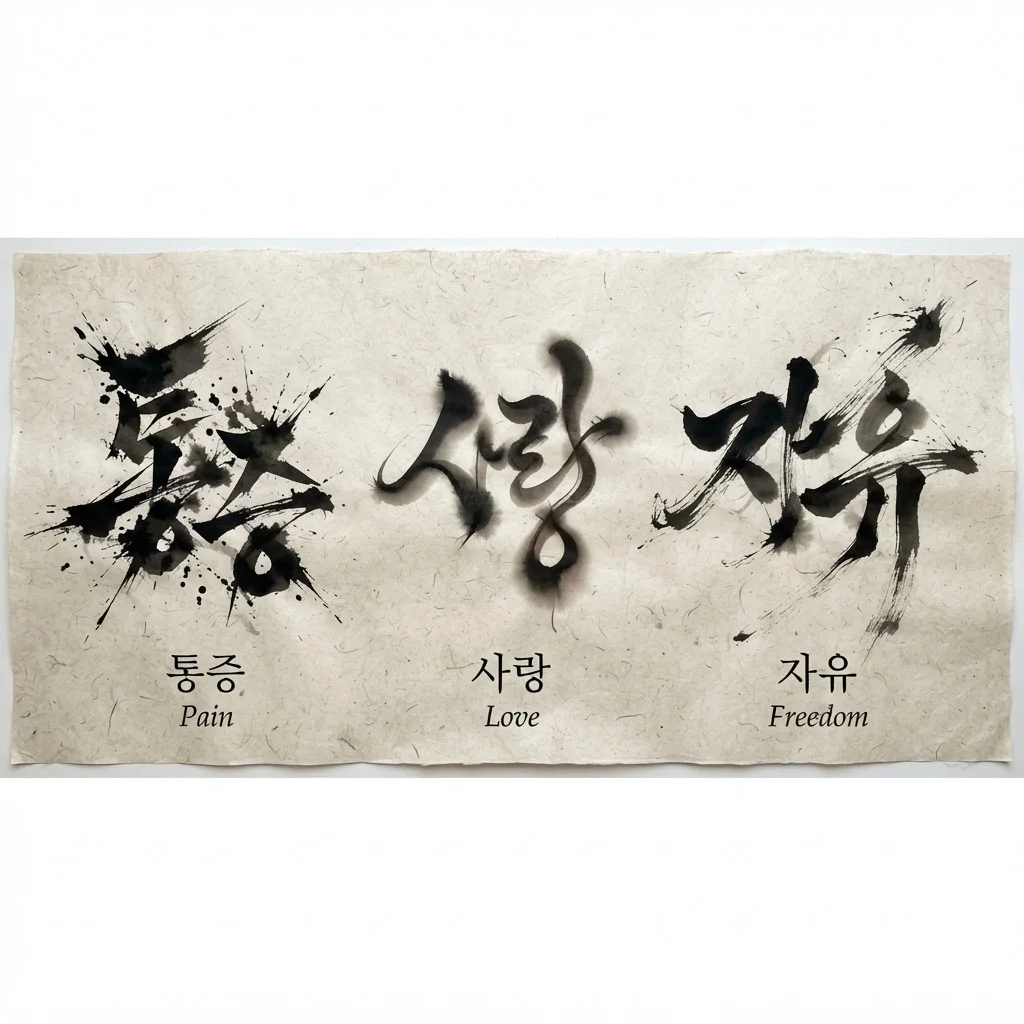 통증 사랑 자유
통증 사랑 자유
Pain Love Freedom